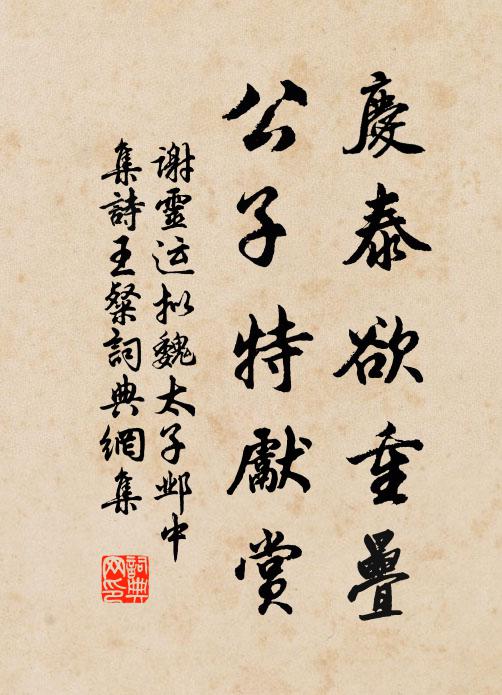 慶泰欲重疊
公子特獻賞
谢靈运拟魏太子邺中
集詩王粲詞典網集
詞典
网印